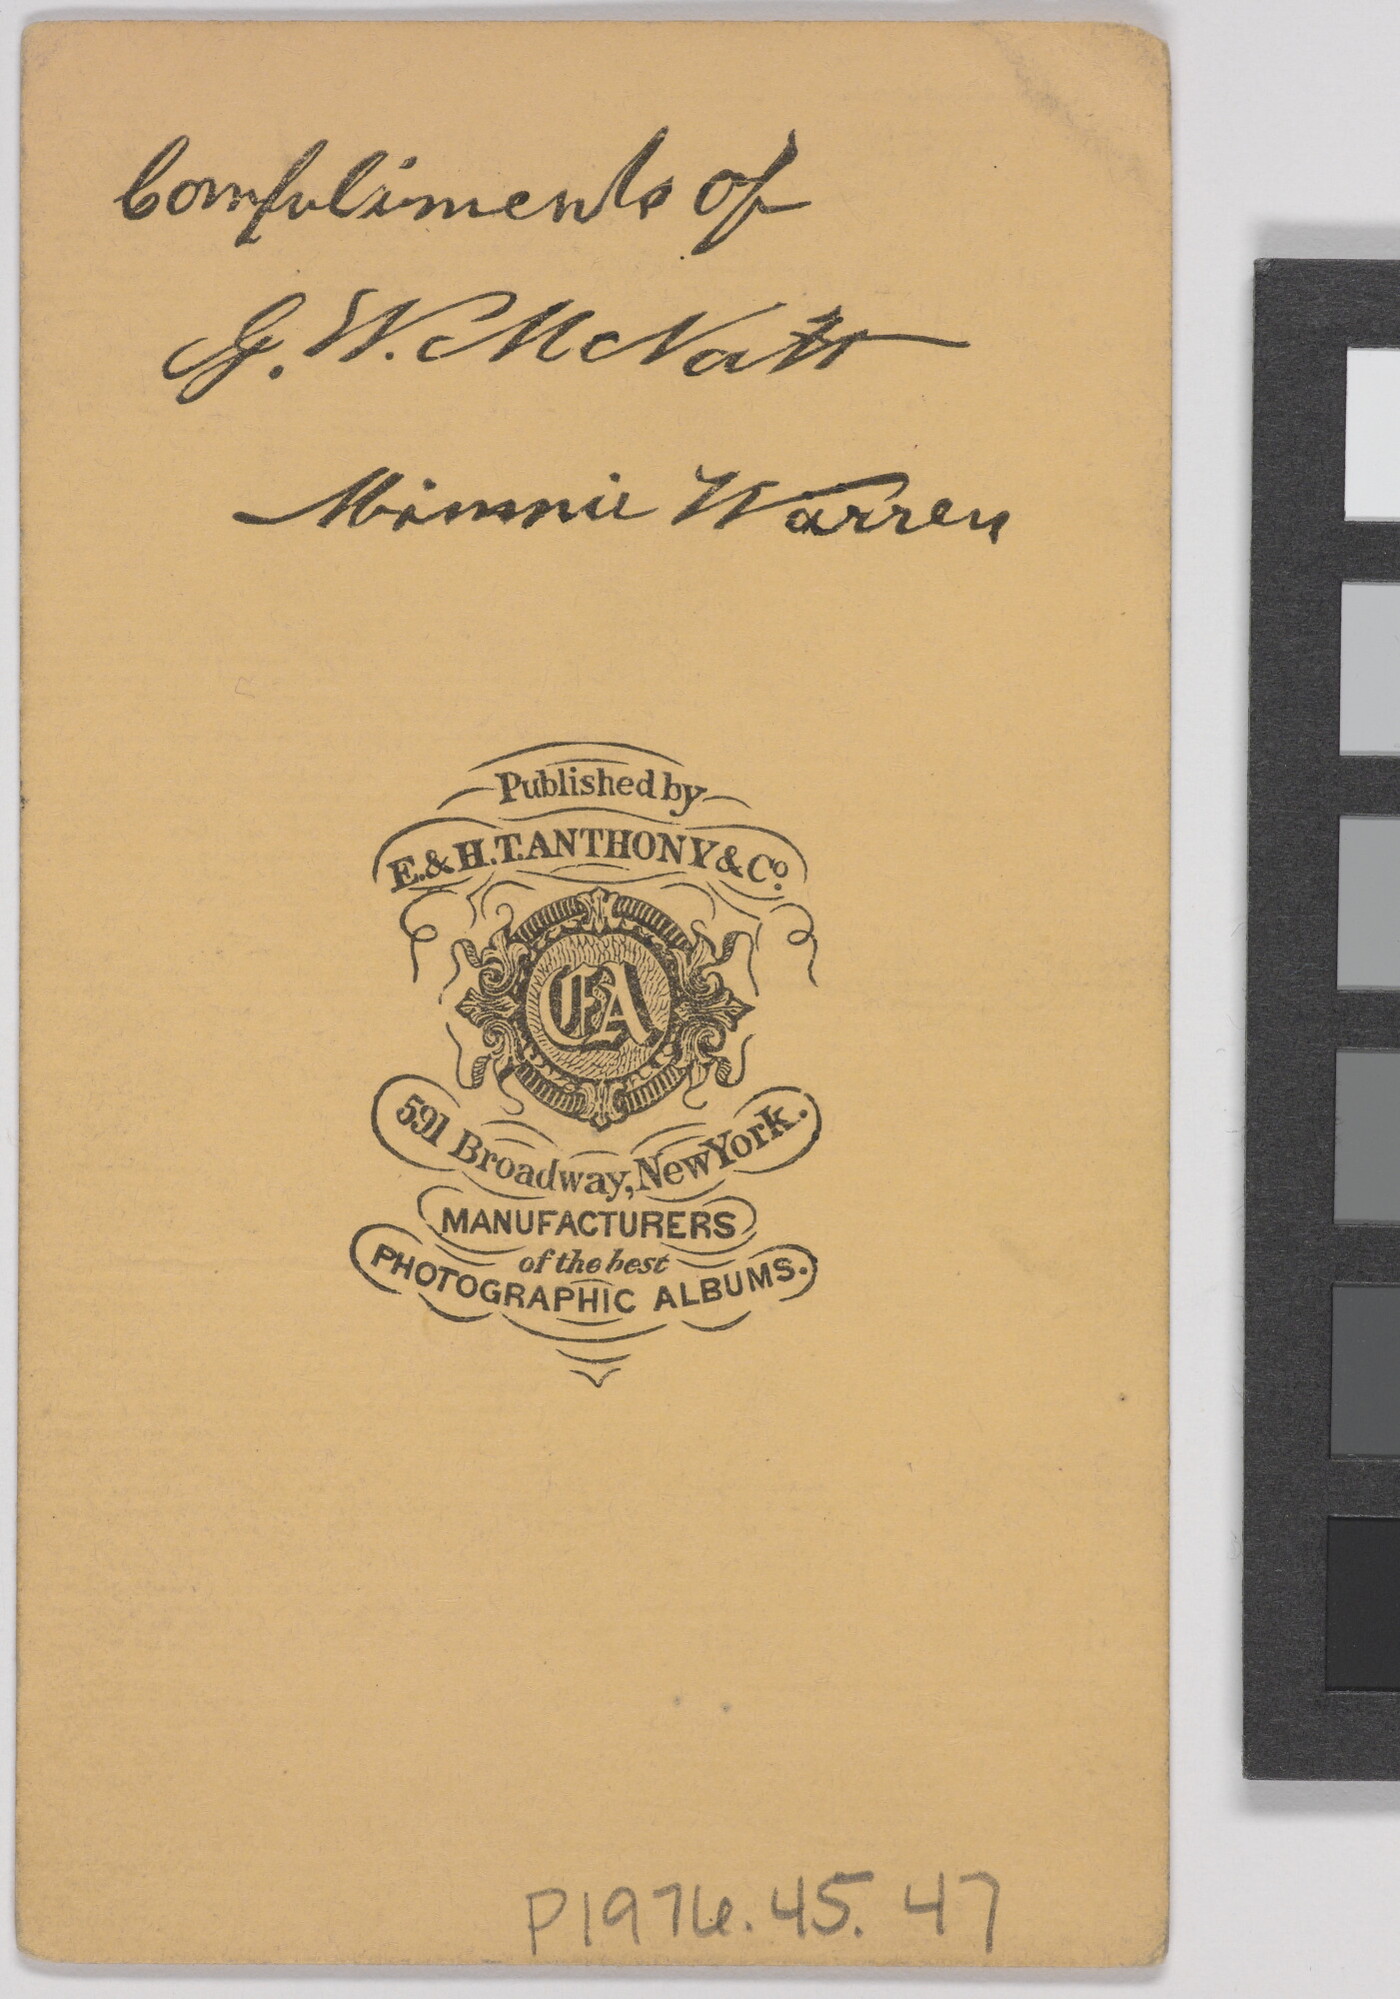 Compliments of
G. W. McNatt
Minnie Warren
Published by
E. & H. T. ANTHONY & Co.
EA
591 Broadway, New York.
MANUFACTURERS
of the best
PHOTOGRAPHIC ALBUMS.
P1976.45.47